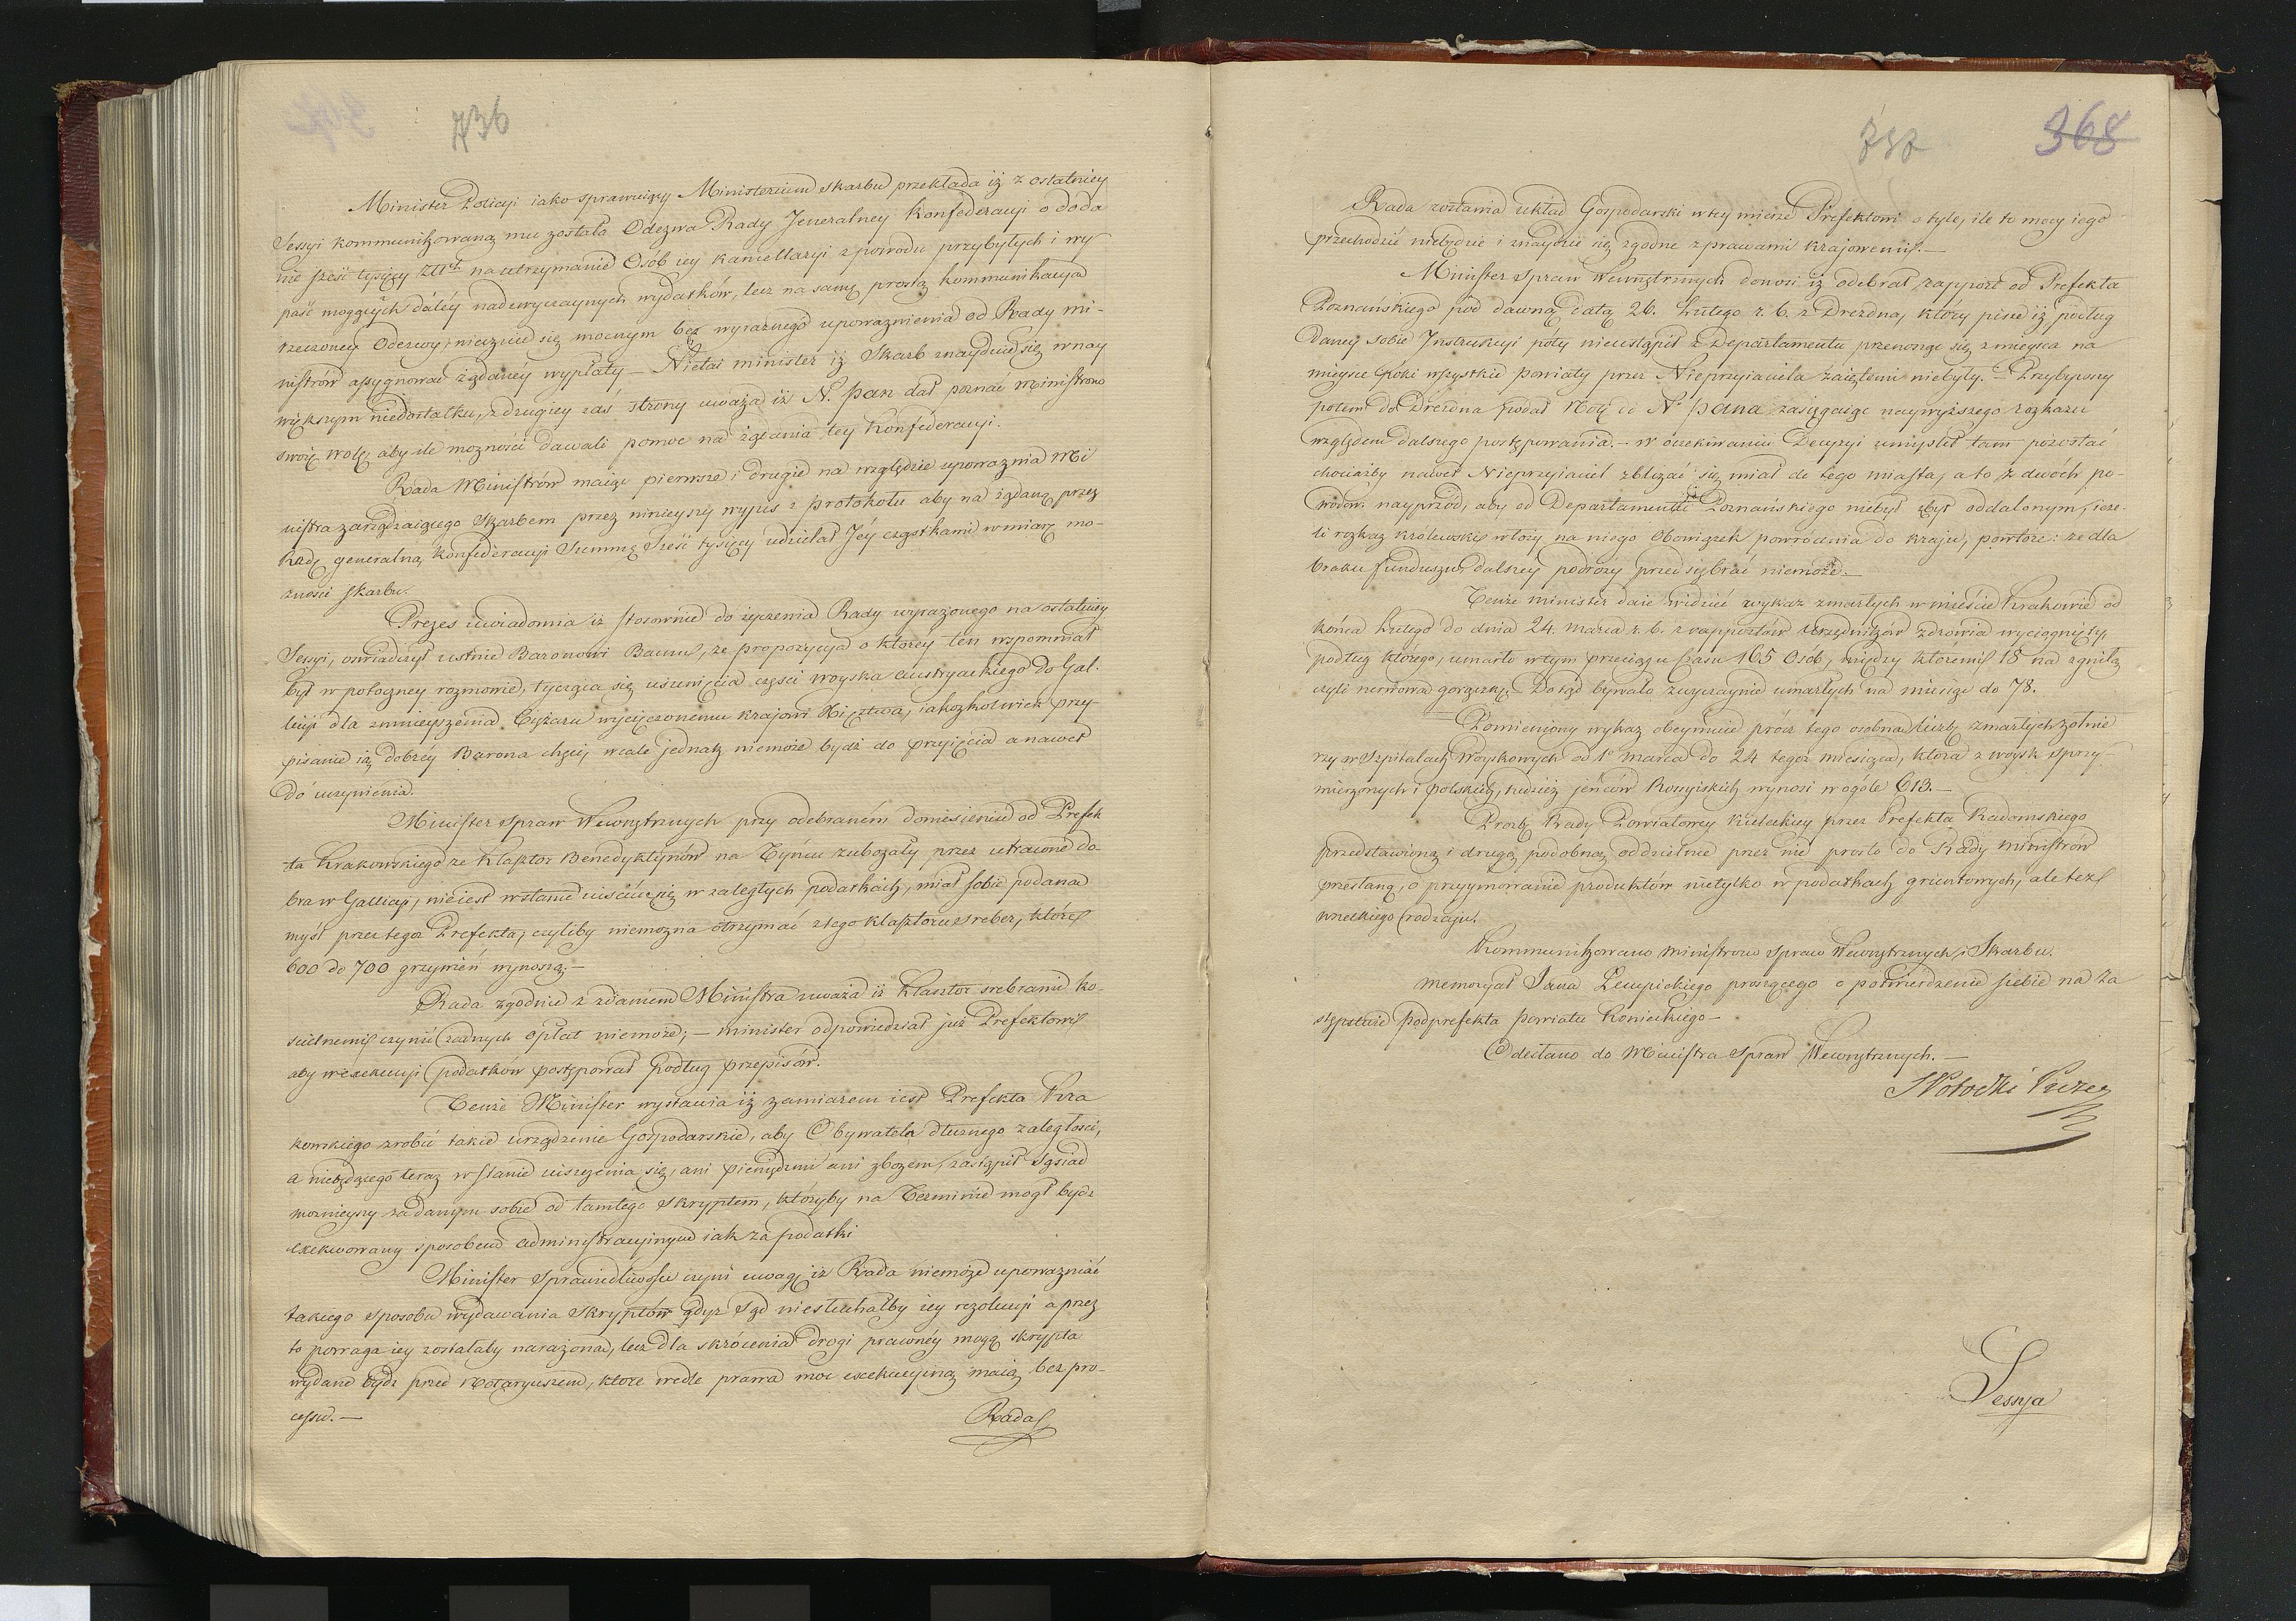 736
Minister Policyi iako sprawuiący Ministerium skarbu przekłada iż z ostatniey
Sessyi kommunikowaną mu została Odezwa Rady Jeneralney Konfederacyi o doda
nie sześć tysięcy Złt na utrzymanie Osób iey kancellaryi z powodu przybyłych i wy
paść mogących daléy nadzwyczaynych wydatków, lecz na samą prostą kommunikacyą
rzeczoney Odezwy, nieczuie się mocnym bez wyraznego upoważnienia od Rady mi-
nistrów assygnować żądaney wypłaty – Nietai minister iż Skarb znayduie się w nay
większym niedostatku, z drugiey zaś strony uważa iż N. Pan dał poznać Ministrom
swoię wolę aby ile możności dawali pomoc na żądania tey Konfederacyi.
Rada Ministrów maiąc pierwsze i drugie na względzie upoważnia Mi
nistra zarządzaiącego Skarbem przez ninieyszy wypis z protokołu aby na żądaną przez
Radę generalną Konfederacyi Summę Sześć tysięcy udzielał Jéy cząstkami w miarę mo-
żności skarbu.
Prezes uwiadomia iż stosownie do życzenia Rady wyrażonego na ostatniey
Sessyi, oświadczył ustnie Baronowi Baum, że propozycya o ktorey ten wspomniał
był w potoczney rozmowie, tycząca się usunięcia części woyska austryackiego do Gal-
licyi dla zmnieyszenia Ciężaru wycieńczonemu krajowi Xięztwa, iakożkolwiek przy-
pisanie ią dobréy Barona chęci, wcale jednak niemoże bydź do przyięcia a nawet
do uczynienia.
Minister Spraw Wewnętrznych przy odebraném doniesieniu od Prefek
ta Krakowskiego że Klasztor Benedyktynów na Tyńcu zubożały przez utracone do
bra w Gallicyi, nieiest w stanie uiścić się w zaległych podatkach, miał sobie podaną
myśl przez tegoż Prefekta, czyliby niemożna otrzymać z tego klasztoru sreber, które
600 do 700 grzywień wynoszą –
Rada zgodnie z zdaniem Ministra uważa iż Klasztor srebrami ko-
ścielnemi czynić żadnych opłat niemoże; – minister odpowiedział już Prefektowi
aby w exekucyi podatków postępował podług przepisów.
Tenże Minister wystawia iż zamiarem iest Prefekta Kra
kowskiego zrobić takie urządzenie Gospodarskie, aby Obywatela dłużnego zaległości,
a niebędącego teraz w stanie uiszczenia się, ani pieniędzmi ani zbożem, zastąpił Sąsiad
możnieyszy za danym sobie od tamtego Skryptem, któryby na Terminie mogł bydź
exekwowany sposobem administracyjnym iak za podatki
Minister Sprawiedliwości czyni uwagę iż Rada niemoże upoważniać
takiego sposobu wydawania Skryptów gdyż Sąd niesłuchałby iey rezolucyi a przez
to powaga iey zostałaby narażona, lecz dla skrócenia drogi prawnéy mogą skrypta
wydane bydź przed Notaryuszem, które wedle prawa moc exekucyjną maią bez pro-
cessu. –
Rada
737
368
Rada zostawia układ Gospodarski w tey mierze Prefektowi o tyle, ile to mocy iego
przechodzić niebędzie i znaydzie się zgodne z prawami krajowemi. –
Minister Spraw Wewnętrznych donosi iż odebrał rapport od Prefekta
Poznańskiego pod dawną datą 26. Lutego r. b. z Drezna, który pisze iż podług
Daney sobie Instrukcyi póty nieustąpił z Departamentu przenosząc się z mieysca na
mieysce póki wszystkie powiaty przez Nieprzyiaciela zaiętemi niebyły. – Przybywszy
potem do Drezna podał Notę do N. Pana zasięgaiąc naywyższego rozkazu
względem dalszego postępowania. – w oczekiwaniu Decyzyi umyślił tam pozostać
chociażby nawet Nieprzyiaciel zbliżać się miał do tego miasta, a to z dwóch po-
wodów nayprzód, aby od Departamentu Poznańskiego niebył zbyt oddalonym, ieże-
li rozkaz królewski włoży na niego Obowiązek powrócenia do kraju, powtóre: że dla
braku funduszu dalszey podroży przedsięwźiąć niemoże. –
Tenże minister daie widzieć wykaz zmarłych w mieście Krakowie od
końca Lutego do dnia 24. Marca r. b. z rapportów Urzędników zdrowia wyciągnięty,
podług którego, umarło w tym przeciągu czasu 165 Osób, między któremi 18 na zgniłą
czyli nerwową gorączkę. Dotąd bywało zwyczaynie umarłych na miesiąc do 78.
Pomieniony wykaz obeymuie prócz tego osobną liczbę zmarłych żołnie
rzy w Szpitalach Woyskowych od 1o marca do 24 tegoż miesiąca, która z woysk sprzy
mierzonych i polskich, tudzież jeńców Rossyiskich wynosi w ogóle 613. –
Prozbę Rady Powiatowey Kieleckiey przez Prefekta Radomskiego
przedstawioną i drugą podobną oddzielnie przez nię prosto do Rady Ministrów
przesłaną, o przyymowanie produktów nietylko w podatkach gruntowych, ale też
wszelkiego rodzaju.
Kommunikowano Ministrom Spraw Wewnętrznych i Skarbu.
Memoryał Jana Lempickiego proszącego o potwierdzenie siebie na Za
stępstwie Podprefekta powiatu Koneckiego –
Odesłano do Ministra Spraw Wewnętrznych. –
S Potocki Prezes
Sessya